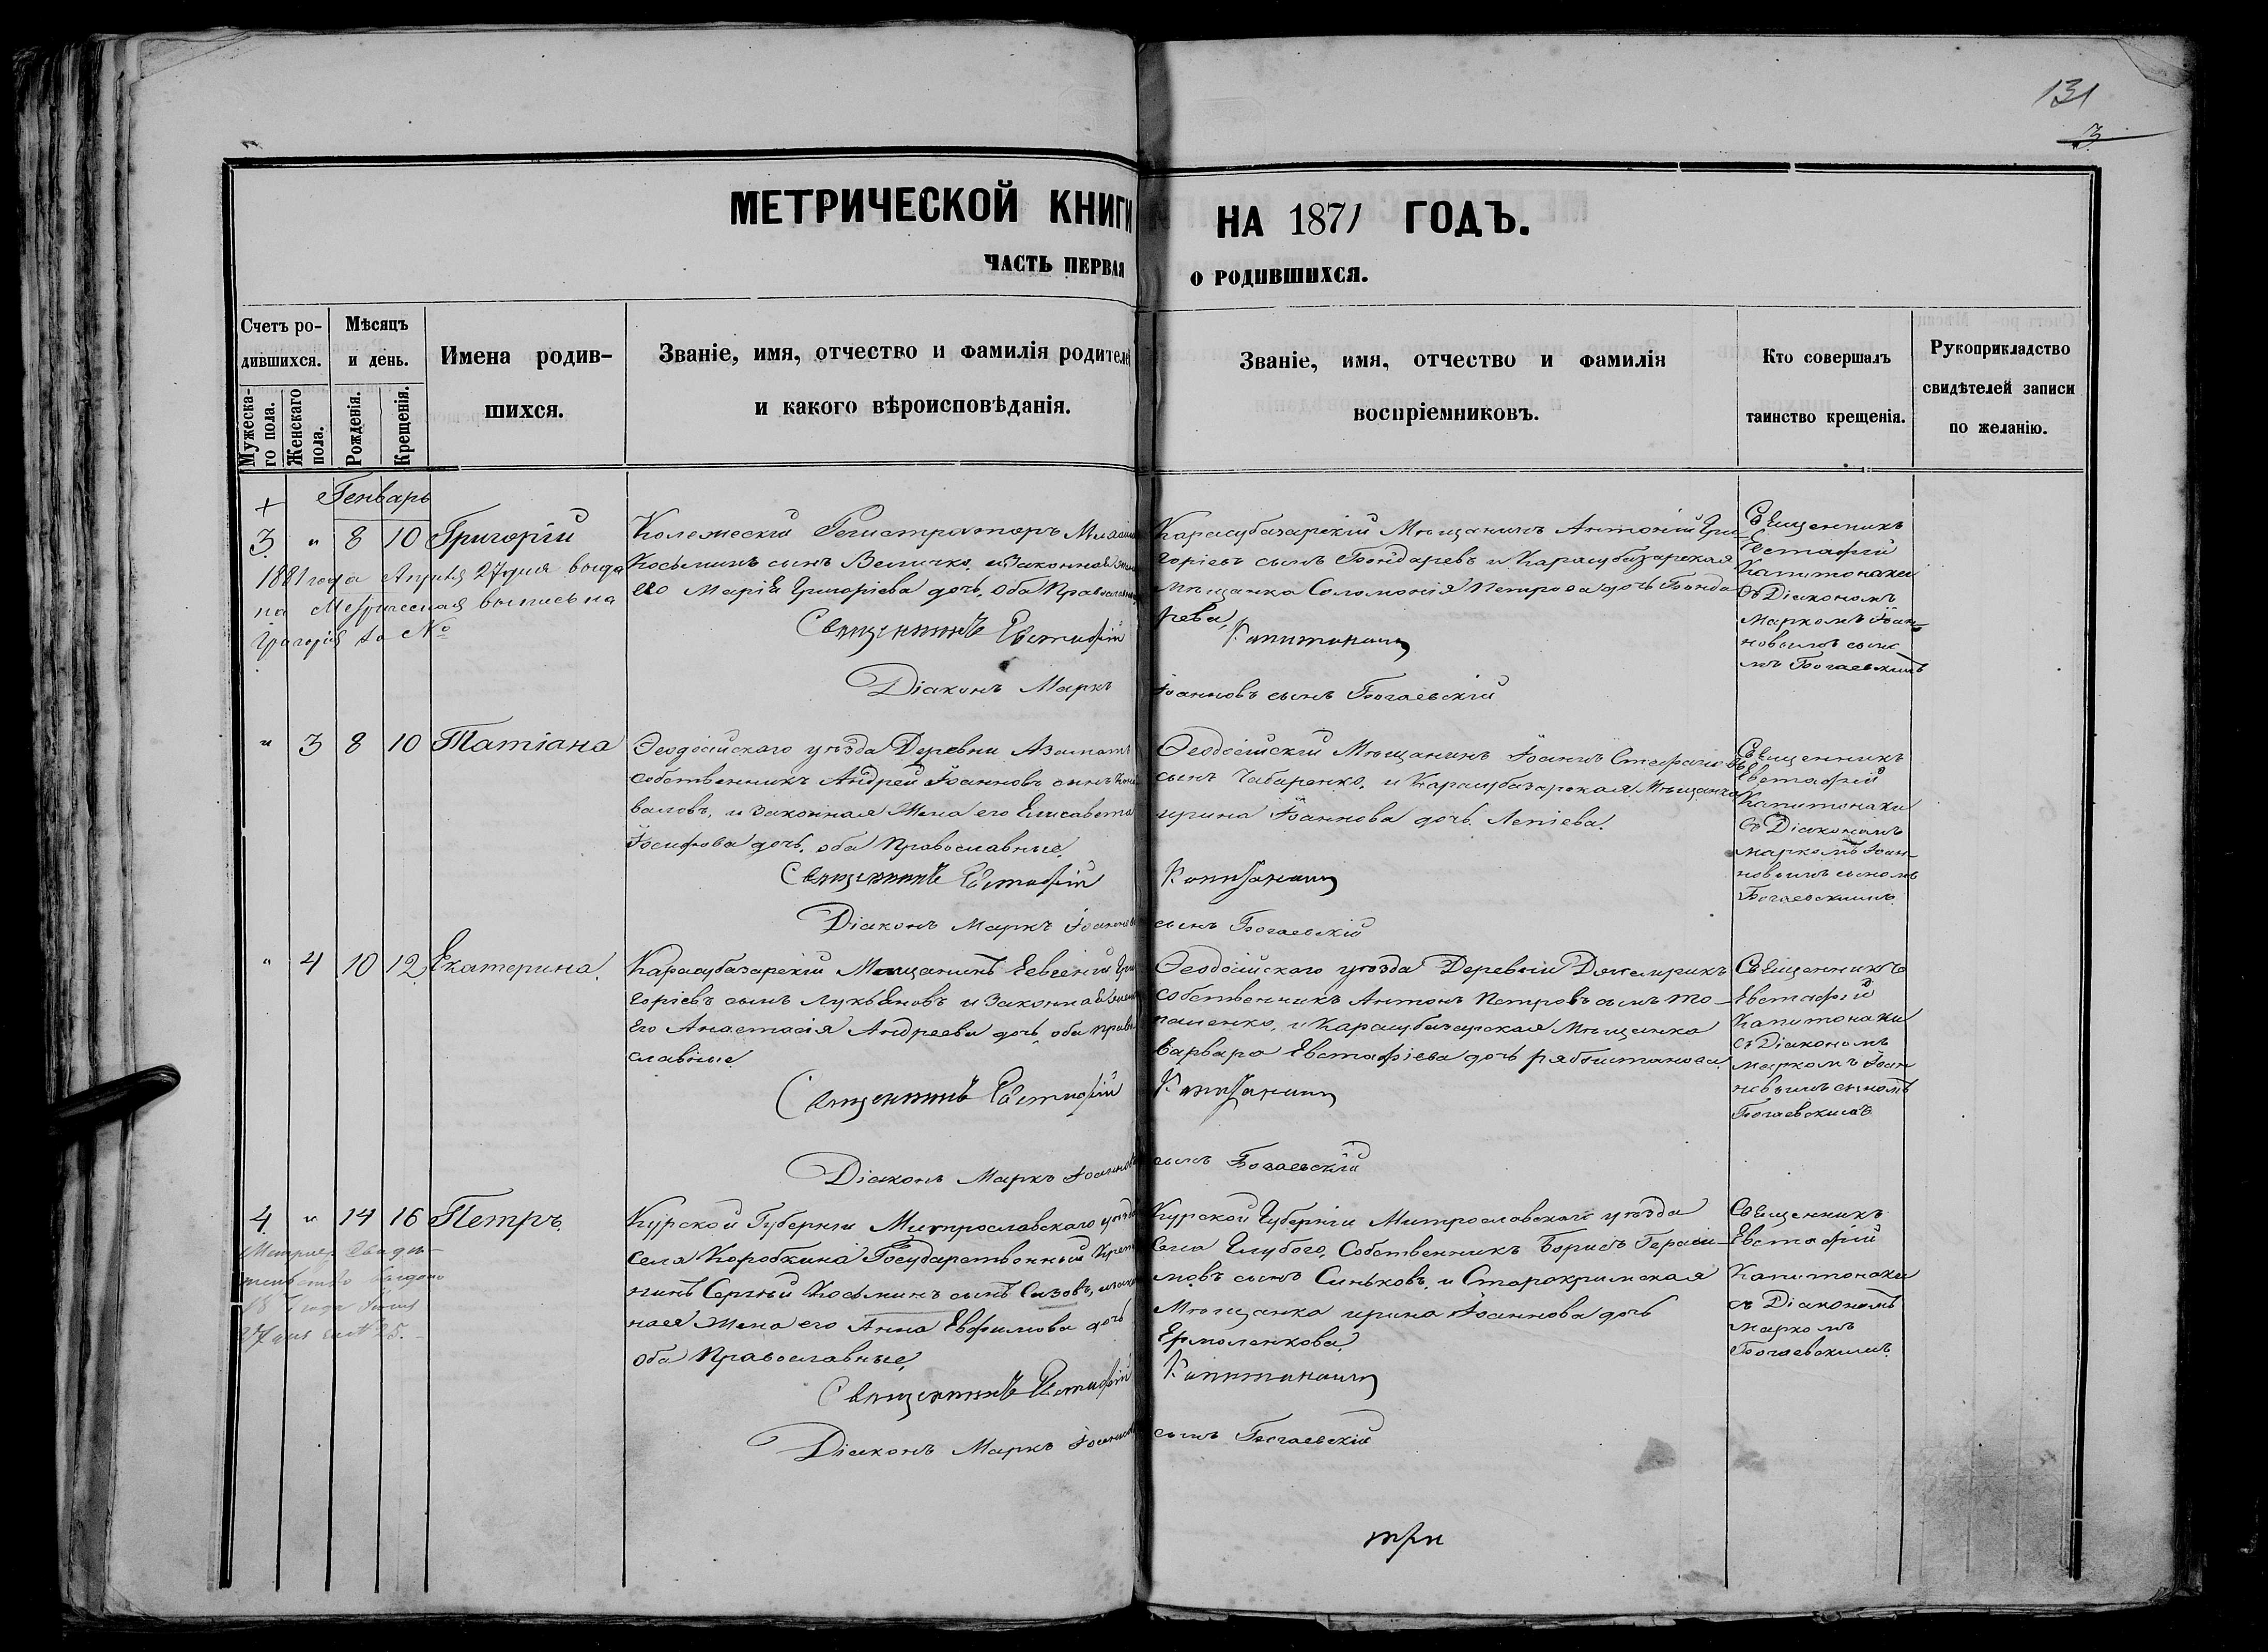 131
3
МЕТРИЧЕСКОЙ КНИГИ НА 1871 ГОДЪ.
ЧАСТЬ ПЕРВАЯ О РОДИВШИХСЯ.
Счетъ ро-
дившихся.
Мужеска-
го пола.
Женскаго
пола.
Мѣсяцъ
и день.
Рожденія.
Крещенія.
Имена родив-
шихся.
Званіе, имя, отчество и фамилія родителей
и какого вѣроисповѣданія.
Званіе, имя, отчество и фамилія
воспріемниковъ.
Кто совершалъ
таинство крещенія.
Рукоприкладство
свидѣтелей записи
по желанію.
+ Генварь
3 " 8 10 Григорій
1881 года Апрѣля 27 дня выда
на Метрическая выпись на
Григорія за №
Колежескій Регистраторъ
Косьминъ сынъ Величко, и Законная
его Марія Григоріева дочь, оба Православные
Священникъ Евстафій
Діаконъ Маркъ
Карасубазарскій Мѣщанинъ Антоній Гри-
горіевъ сынъ Бондаревъ и Карасубазарская
Мѣщанка Соломонія Петрова дочь Бонда
рева,
Капитонаки
Іоанновъ сынъ Богаевскій
Священникъ
Евстафій
Капитонаки
съ Діакономъ
Маркомъ Іоан-
новымъ сыно
мъ Богаевскимъ
" 3 8 10 Татіана
Ѳеодосійскаго уѣзда Деревни Азаматъ
собственникъ Андрей Іоанновъ сынъ
валовъ, и Законная Жена его Елисавета
Іосифова дочь, оба Православные,
Священникъ Евстафій
Діаконъ Маркъ Іоанновъ
Ѳеодосійскій Мѣщанинъ Іоаннъ Стефановъ
сынъ Чабаренко, и Карасубазарская Мѣщанка
ирина Іоаннова дочь Лепіева.
Капитонаки
сынъ Богаевскій
Священникъ
Евстафій
Капитонаки
съ Діакономъ
маркомъ Іоан-
новымъ сыномъ
Богаевскимъ.
" 4 10 12 Екатерина.
Карасубазарскій Мѣщанинъ Евгеній Гри
горіевъ сынъ Лукьяновъ и Законная Жена
Его Анастасія Андреева дочь, оба право
славные
Священникъ Евстафій
Діаконъ Маркъ Іоанновъ
Ѳеодосійскаго уѣзда Деревни
собственникъ Антонъ Петровъ сынъ
паленко, и Карасубазарская Мѣщанка
варвара Евстафіева дочь
Капитонаки
сынъ Богаевскій
Священникъ
Евстафій
Капитонаки
съ Діакономъ
маркомъ Іоан
новымъ сыномъ
Богаевскимъ
4. " 14 16 Петръ
Курской Губерніи Митрославскаго уѣзда
села Коробкина Государственный Кресть
нинъ Сергѣй Косьминъ сынъ Сазовъ, и закон
ная жена его Анна Евфимова дочь
оба Православные,
Священникъ Евстафій
Діаконъ Маркъ Іоанновъ
Курской Губерніи Митрославскаго уѣзда
Села Глубого, Собственникъ Борисъ Гераси-
мовъ сынъ Синьковъ, и Старокримская
Мѣщанка ирина Іоаннова дочь
Ермоленкова,
Капитонаки
сынъ Богаевскій
Священникъ
Евстафій
Капитонаки
съ Діакономъ
марко мъ
Богаевскимъ.
три